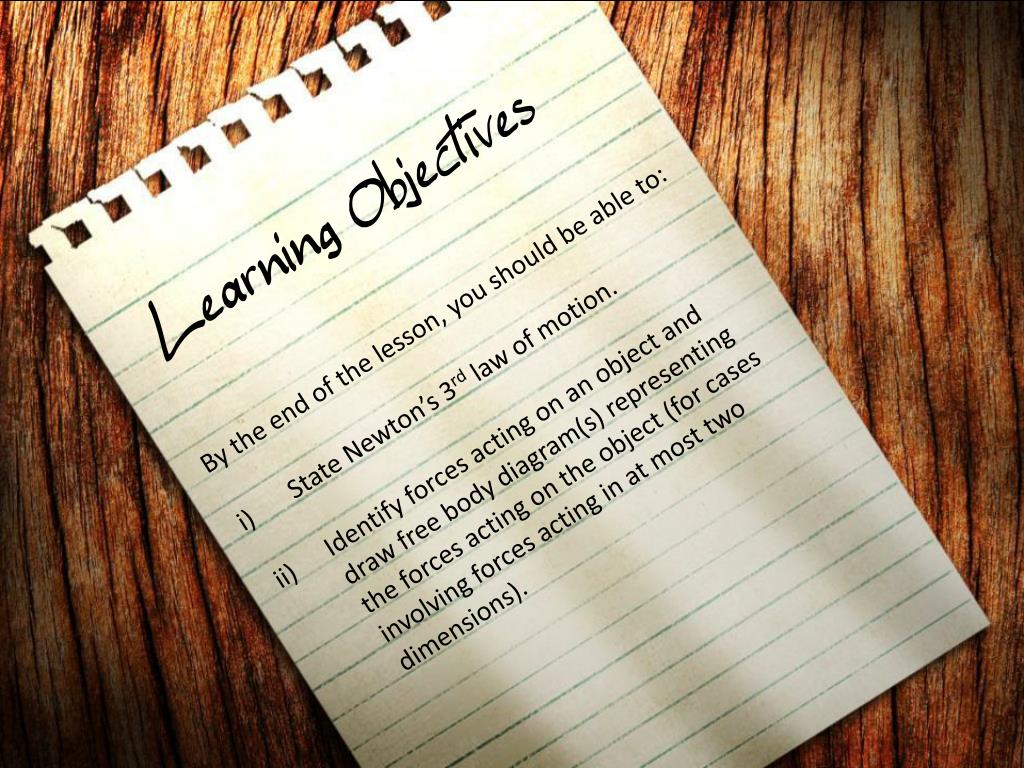 Learning Objectives
By the end of the lesson, you should be able to:
i) State Newton’s 3rd law of motion.
ii) Identify forces acting on an object and
draw free body diagram(s) representing
the forces acting on the object (for cases
involving forces acting in at most two
dimensions).